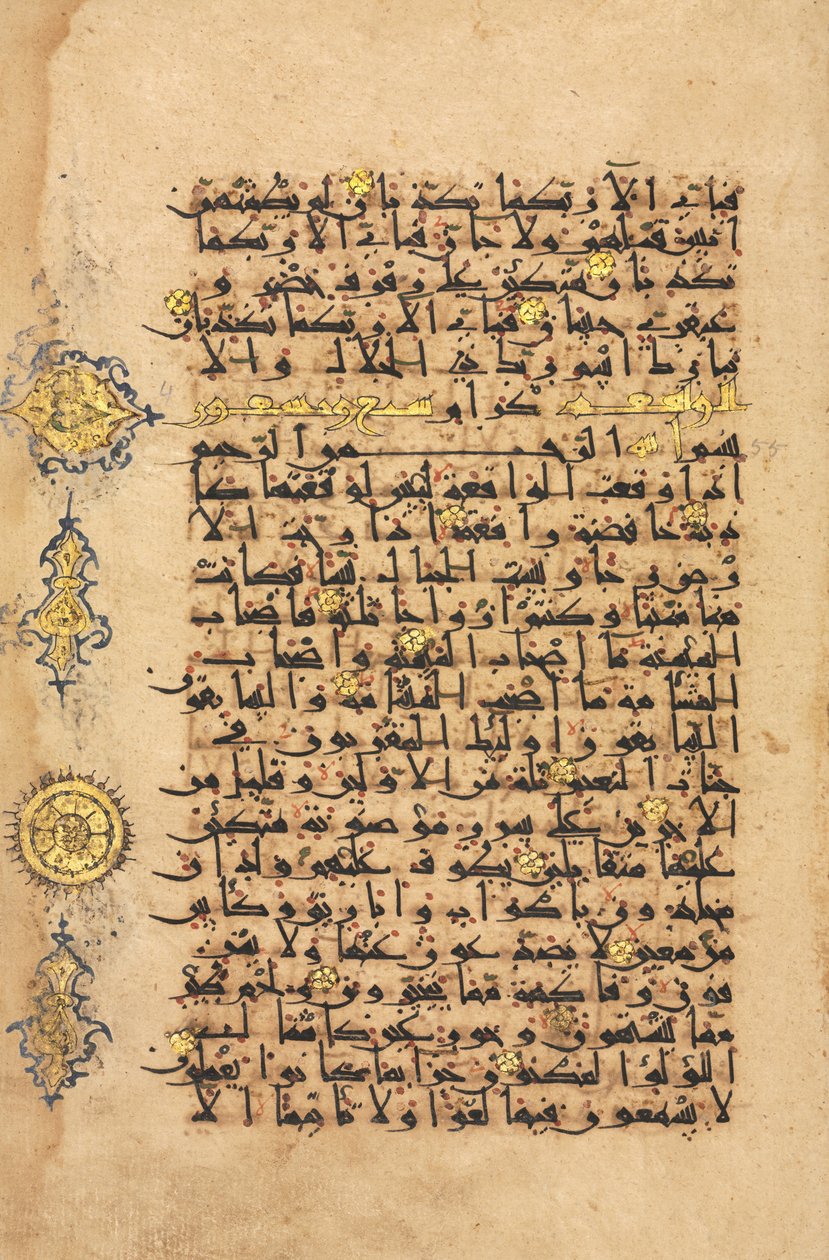 فباي الا ربكما تكذبان لم يطمثهن
انس قبلهم ولا جان فباي الا ربكما
تكذبان متكئين على رفرف خضر و
عبقري حسان فباي الا ربكما تكذبان
تبارك اسم ربك ذي الجلال والا
الواقعة كرام سبع وتسعون
4
بسم الله الرحمن الرحيم
55
اذا وقعت الواقعة ليس لوقعتها كا
ذبة خافضة رافعة اذا رجت الا
رض رجا وبست الجبال بسا فكانت
هباء منبثا وكنتم ازواجا ثلثة فاصحاب
الميمنة ما اصحاب الميمنة واصحاب
المشأمة ما اصحب المشأمة والسابقون
السابقون اولئك المقربون في
جنات النعيم ثلة من الاولين وقليل من
الاخرين على سرر موضونة متكئين
عليها متقابلين يطوف عليهم ولدان
مخلدون باكواب واباريق وكأس
من معين لا يصدعون عنها ولا ينز
فون وفاكهة مما يتخيرون ولحم طير
مما يشتهون وحور عين كامثال
اللؤلؤ المكنون جزاء بما كانوا يعملون
لا يسمعون فيها لغوا ولا تأثيما الا